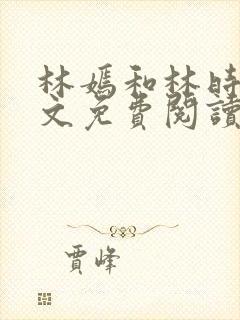 林媽和林時
文免費閱讀
賈峰